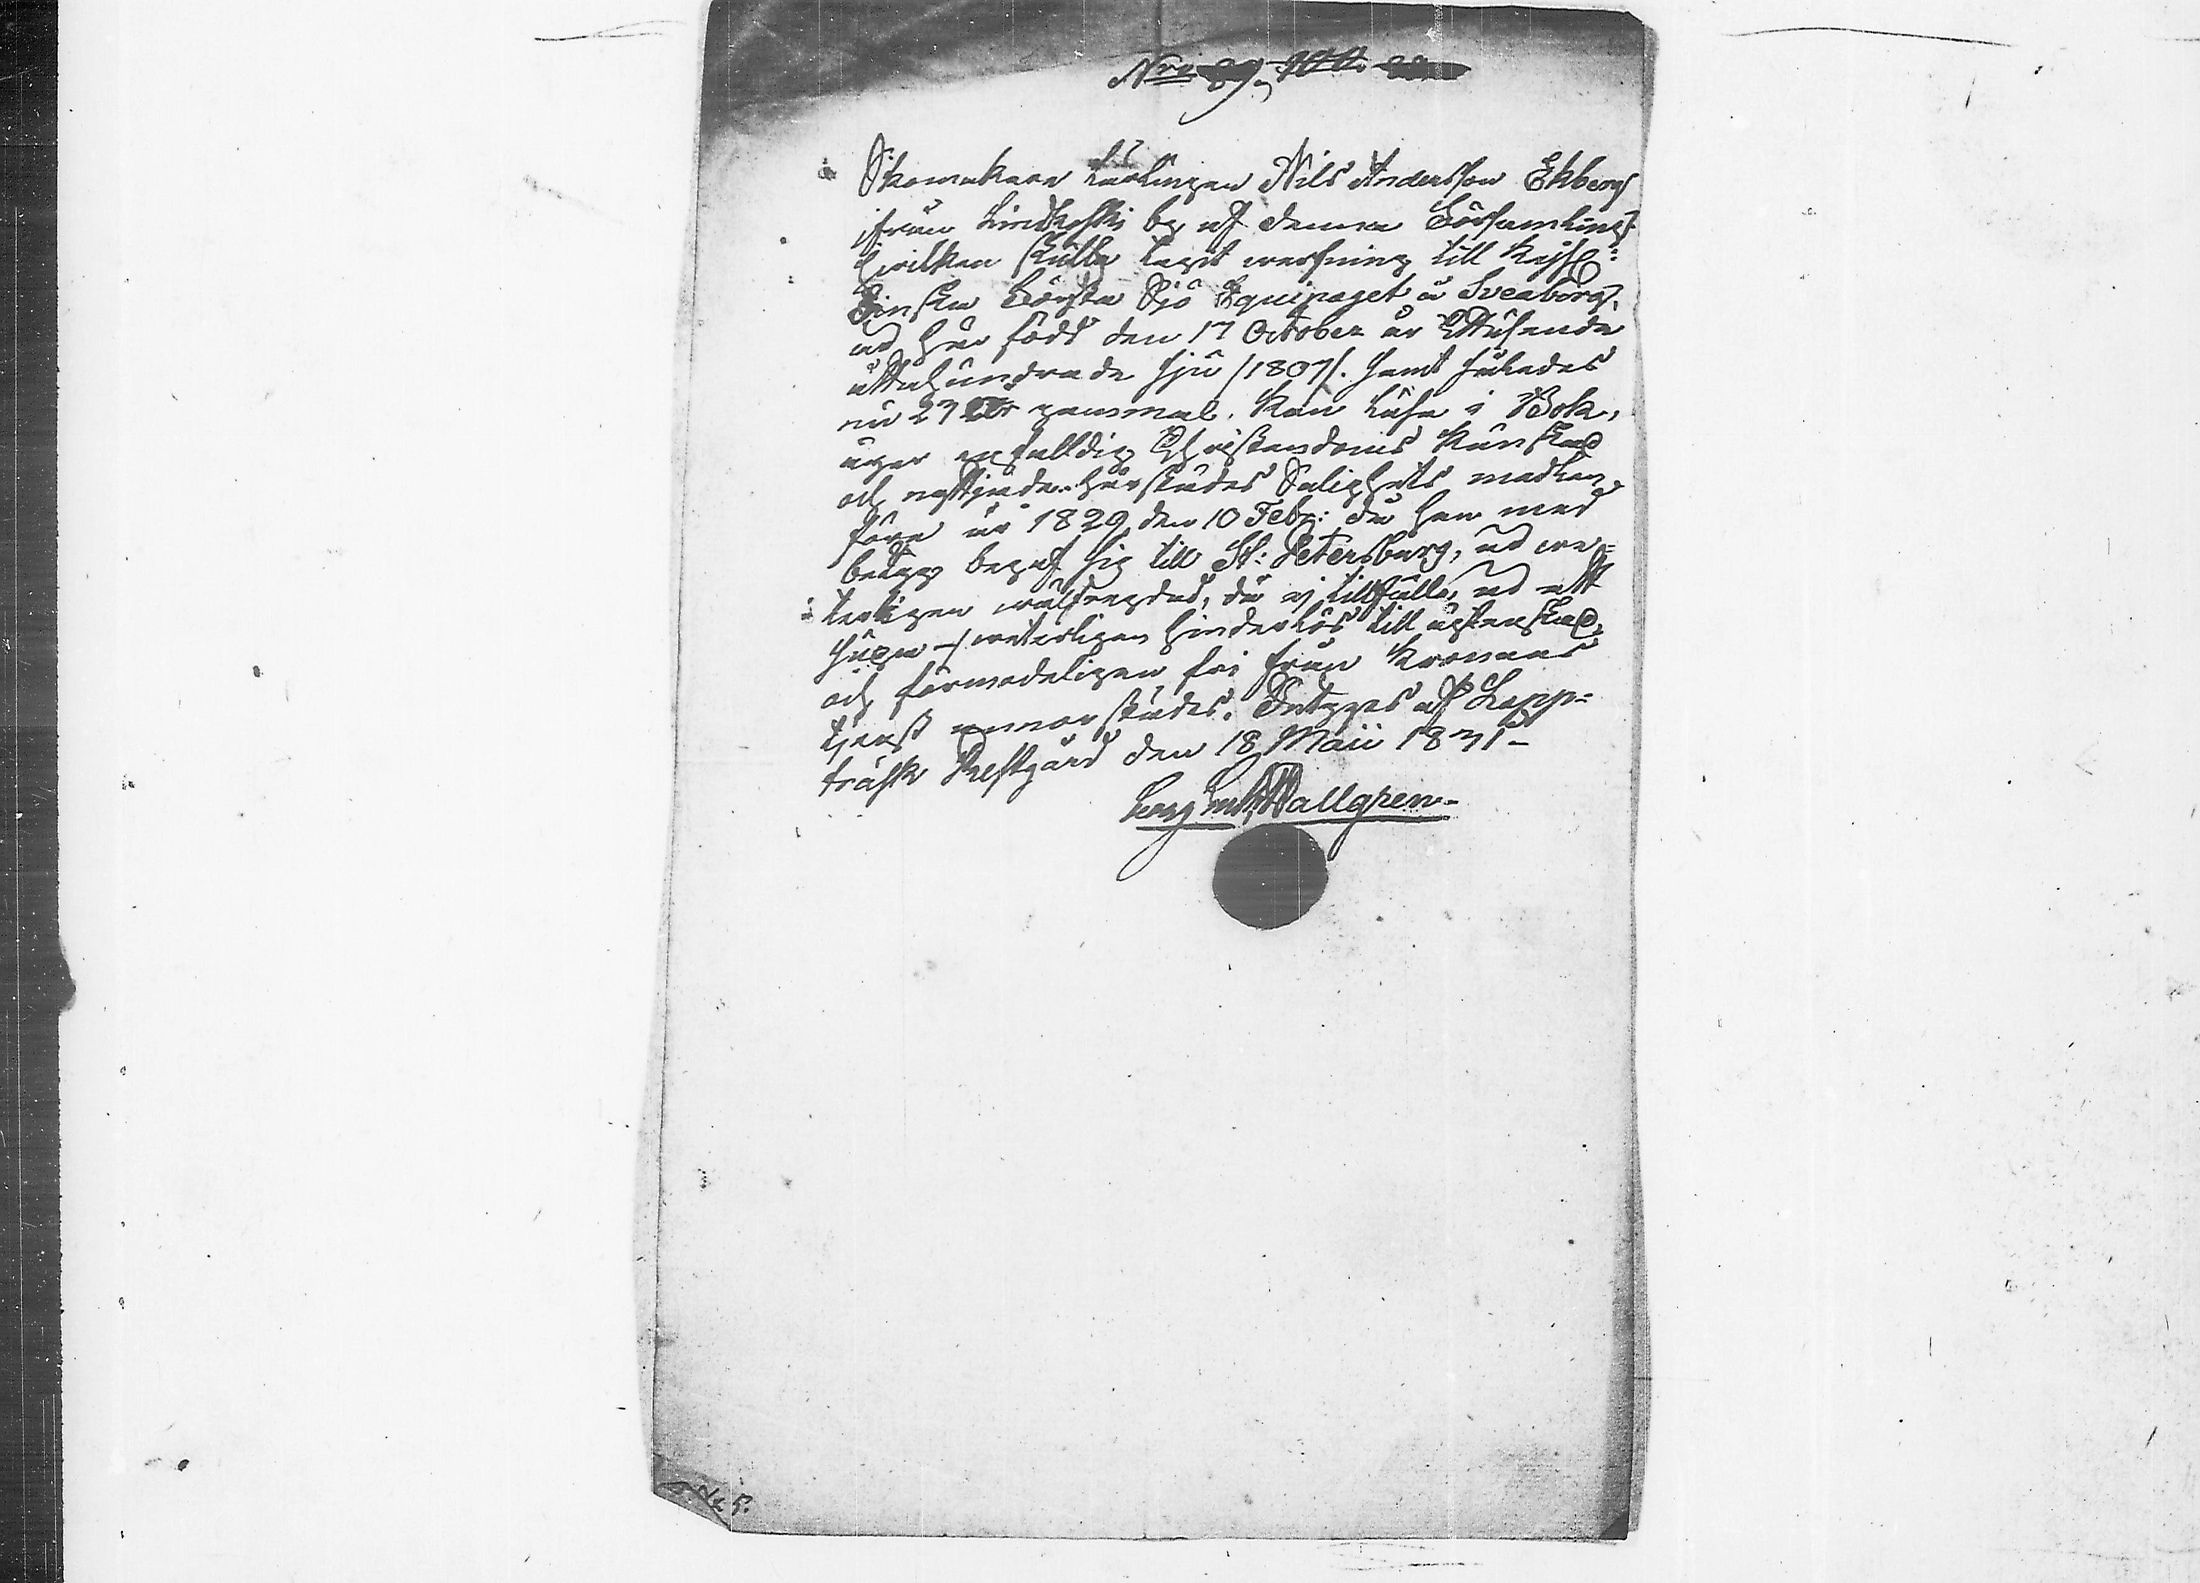 Nro 89.
Skomakare Lärlingen Nils Andersson Ekberg
ifrån Lindkoski by af denna Församling,
hvilken skulle tagit werfning till Kejs:
Finska Första Sjö Equipaget å Sveaborg,
är här född den 17 October år Ettusende
åttahundrade sju /1807/. samt således
nu 23 år gammal. Kan läsa i Bok,
äger enfalldig Christendoms kunskap
och nyttjade härstädes Salighets medlen
före år 1829 den 10 Febr: då han med
betyg begaf sig till St: Petersburg, är we-
terligen wälfregdad, då ej tillfälle, är att
säga — weterligen hinderlös till ägtenskap,
och förmodeligen fri från Kronans
tjenst annorstädes. Betygas af Lapp-
träsk Prestgård den 18 Maii 1831 —
Wallgren.
No 5.